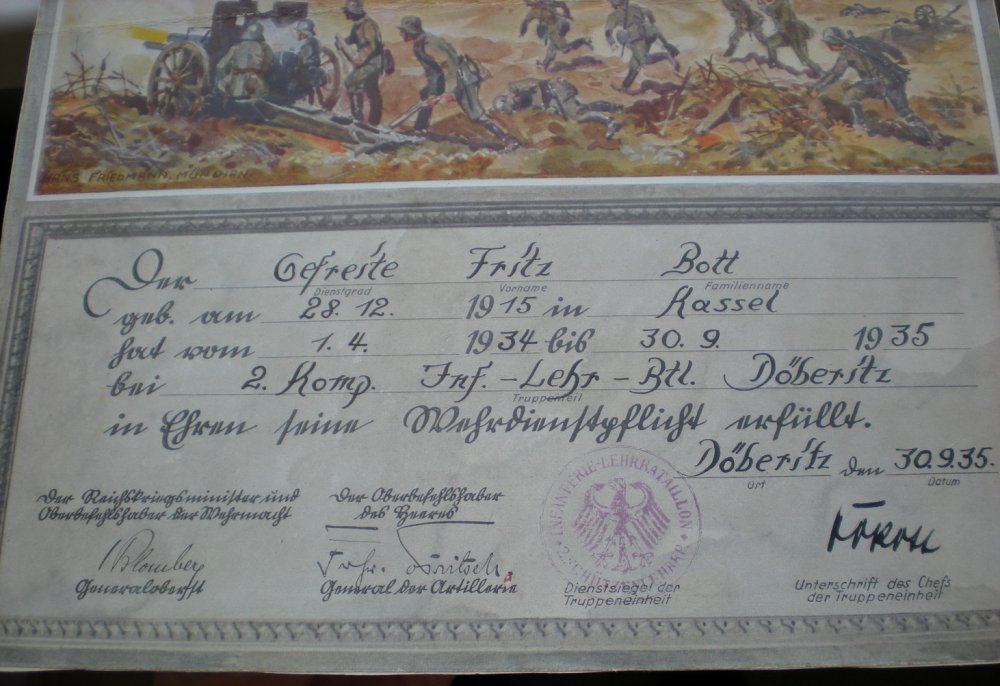 HANS FRIEDMANN. MÜNCHEN.
Der Gefreite Fritz Bott
Dienstgrad Vorname Familienname
geb. am 28. 12. 1915 in Kassel
hat vom 1. 4. 1934 bis 30. 9. 1935
bei 2. Komp. Inf. - Lehr - Btl. Döberitz
Truppenteil
in Ehren seine Wehrdienstpflicht erfüllt.
Döberitz den 30.9.35.
Ort Datum
Der Reichskriegsminister und
Oberbefehlshaber der Wehrmacht
Der Oberbefehlshaber
des Heeres
INFANTERIE-LEHRBATAILLON
Blomberg
Generaloberst
Frhr. v. Fritsch.
General der Artillerie
Dienstsiegel der
Truppeneinheit
Unterschrift des Chefs
der Truppeneinheit